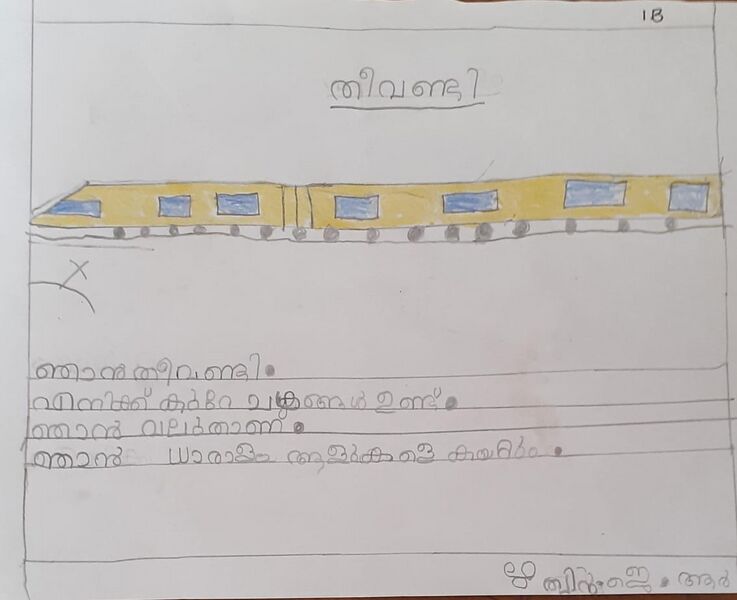 1B
തീവണ്ടി
ഞാൻ തീവണ്ടി.
എനിക്ക് കുറേ ചക്രങ്ങൾ ഉണ്ട്.
ഞാൻ വലുതാണ്.
ഞാൻ ധാരാളം ആളുകളെ കയറ്റും.
ജെ. ആർ